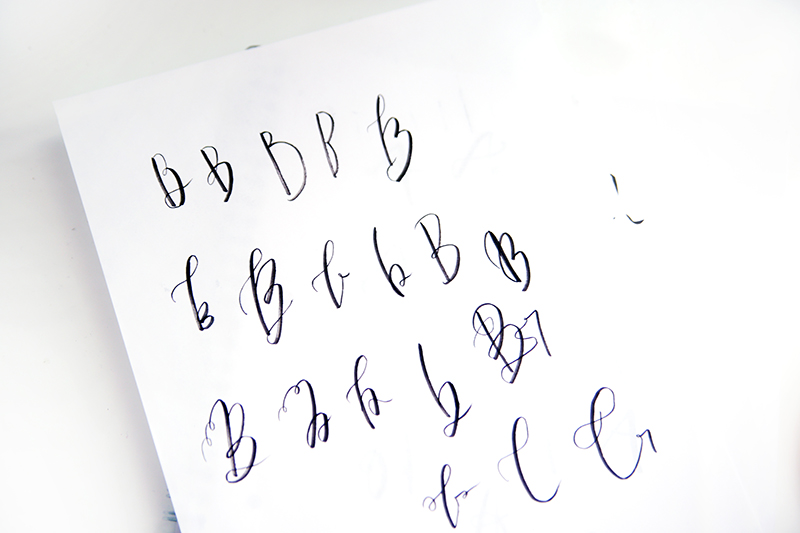 B B B B B
b B b b B B
B B b b B
b b b